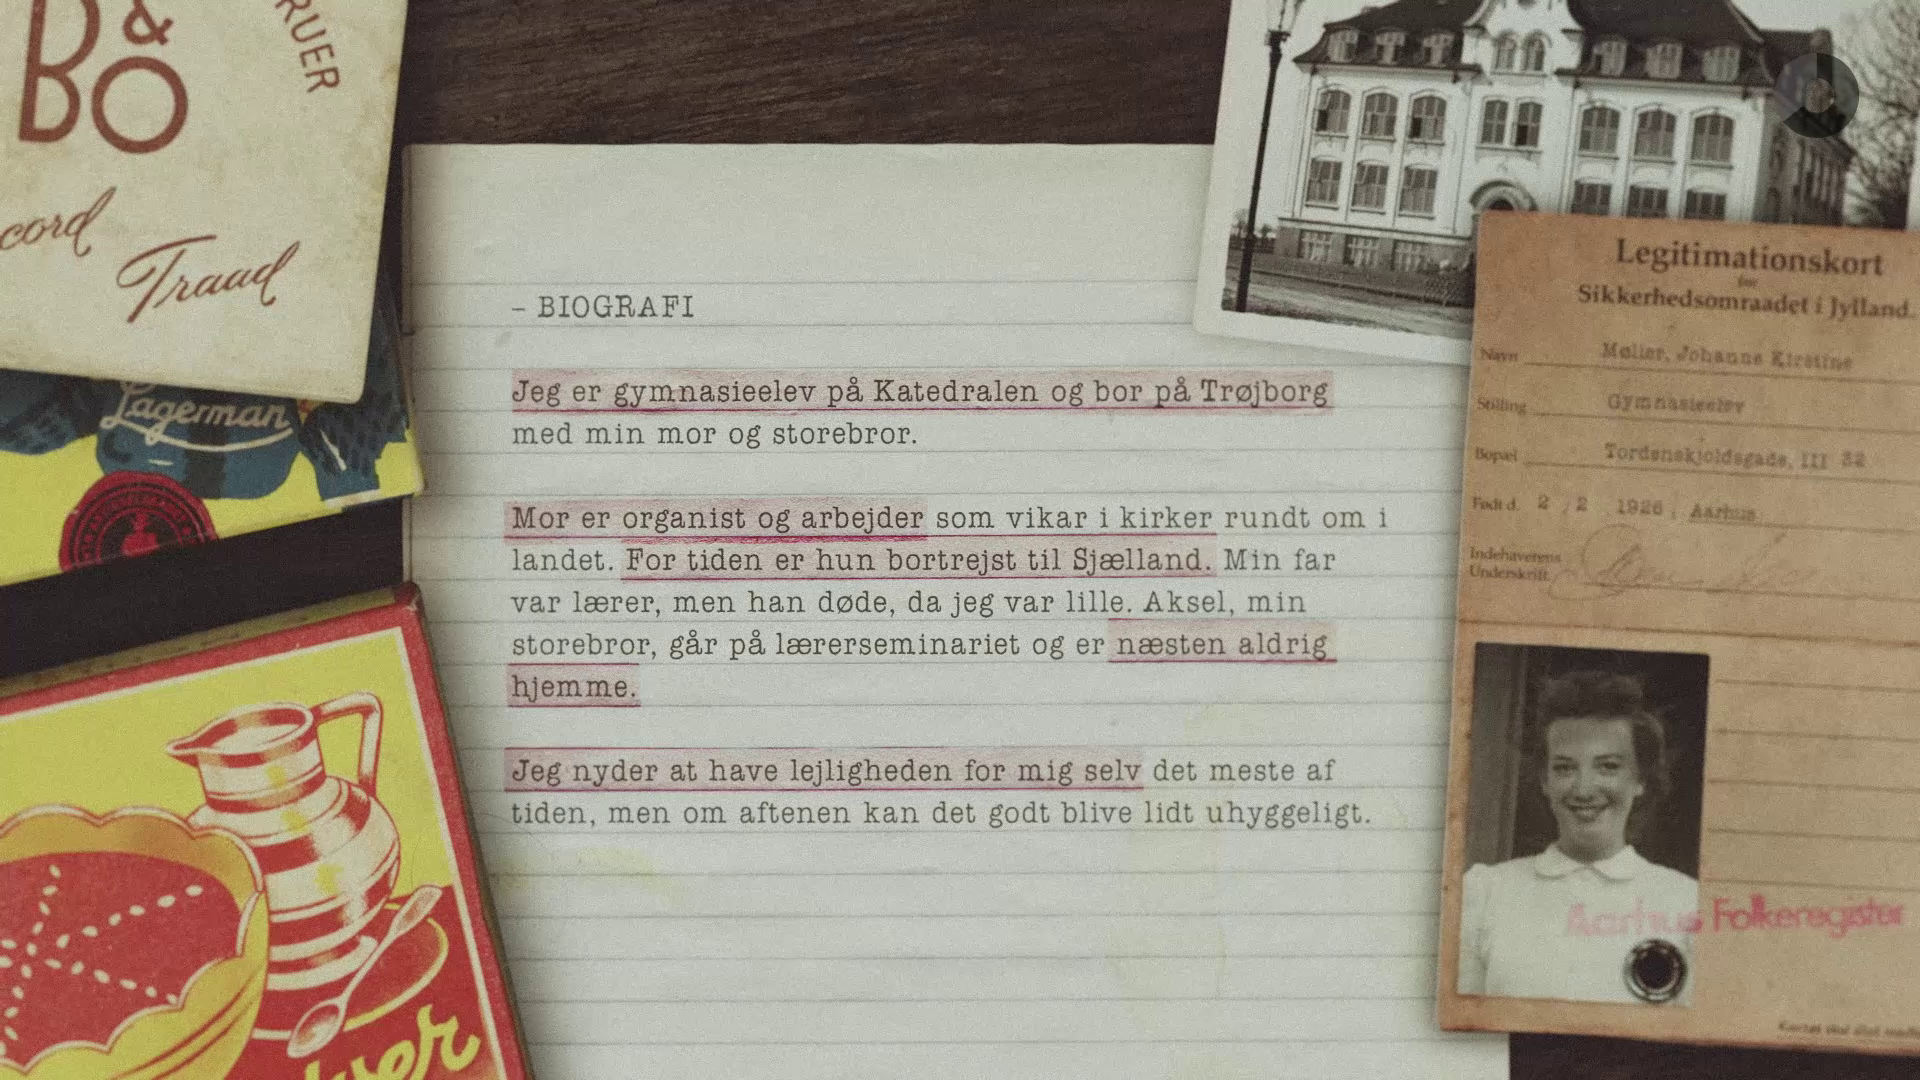 &
BO
RUER
cord
Traad
Lagerman
– BIOGRAFI
Jeg er gymnasieelev på Katedralen og bor på Trøjborg
med min mor og storebror.
Mor er organist og arbejder som vikar i kirker rundt om i
landet. For tiden er hun bortrejst til Sjælland. Min far
var lærer, men han døde, da jeg var lille. Aksel, min
storebror, går på lærerseminariet og er næsten aldrig
hjemme.
Jeg nyder at have lejligheden for mig selv det meste af
tiden, men om aftenen kan det godt blive lidt uhyggeligt.
Legitimationskort
for
Sikkerhedsomraadet i Jylland.
Navn Møller, Johanne Kirstine
Stilling Gymnasieelev
Bopæl Tordenskjoldsgade, III 32
Født d. 2 / 2 1926, Aarhus
Indehaverens
Underskrift
Aarhus Folkeregister